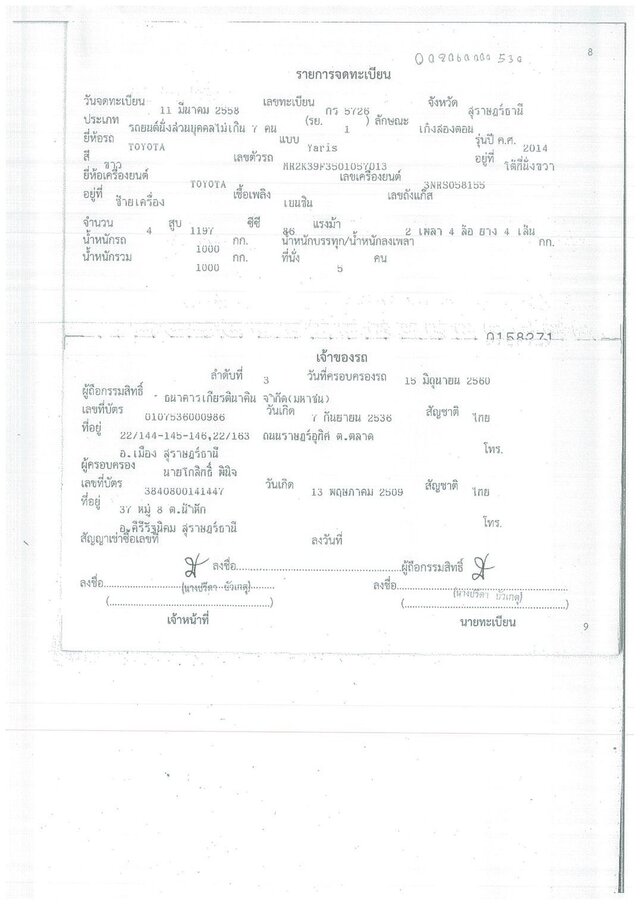 8
รายการจดทะเบียน
วันจดทะเบียน 11 มีนาคม 2558 เลขทะเบียน กร 5726 จังหวัด สุราษฎร์ธานี
ประเภท รถยนต์นั่งส่วนบุคคลไม่เกิน 7 คน (รย. 1 ) ลักษณะ เก๋งสองตอน
ยี่ห้อรถ TOYOTA แบบ Yaris รุ่นปี ค.ศ. 2014
สี ขาว เลขตัวรถ MR2K39F3501057013 อยู่ที่ ใต้ที่นั่งขวา
ยี่ห้อเครื่องยนต์ TOYOTA เลขเครื่องยนต์ 3NRS058155
อยู่ที่ ซ้ายเครื่อง เชื้อเพลิง เบนซิน เลขถังแก๊ส
จำนวน 4 สูบ 1197 ซีซี 86 แรงม้า 2 เพลา 4 ล้อ ยาง 4 เส้น
น้ำหนักรถ 1000 กก. น้ำหนักบรรทุก/น้ำหนักลงเพลา กก.
น้ำหนักรวม 1000 กก. ที่นั่ง 5 คน
0158271
เจ้าของรถ
ลำดับที่ 3 วันที่ครอบครองรถ 15 มิถุนายน 2560
ผู้ถือกรรมสิทธิ์ ธนาคารเกียรตินาคิน จำกัด(มหาชน)
เลขที่บัตร 0107536000986 วันเกิด 7 กันยายน 2536 สัญชาติ ไทย
ที่อยู่ 22/144-145-146,22/163 ถนนราษฎร์อุทิศ ต.ตลาด
อ.เมือง สุราษฎร์ธานี โทร.
ผู้ครอบครอง นายโกสิทธิ์ พินิจ
เลขที่บัตร 3840800141447 วันเกิด 13 พฤษภาคม 2509 สัญชาติ ไทย
ที่อยู่ 37 หมู่ 8 ต.น้ำหัก
อ.คีรีรัฐนิคม สุราษฎร์ธานี โทร.
สัญญาเช่าซื้อเลขที่ ลงวันที่
ลงชื่อ ผู้ถือกรรมสิทธิ์
ลงชื่อ (นางปรีดา บัวเกตุ) ลงชื่อ (นางปรีดา บัวเกตุ)
เจ้าหน้าที่ นายทะเบียน
9